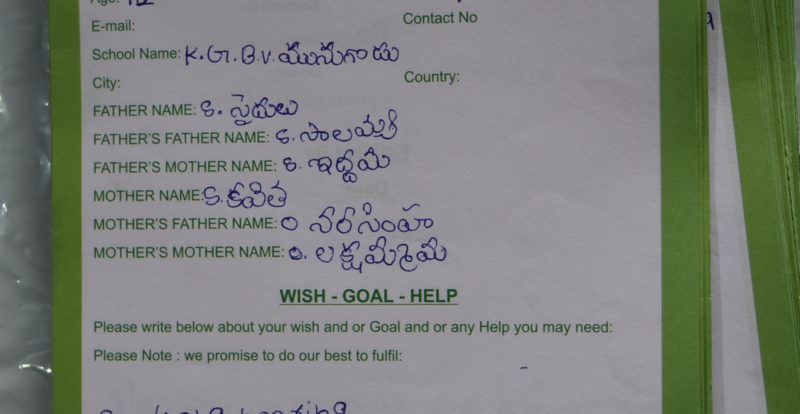 Age: 12
E-mail: Contact No
School Name: K.G.B.V. మునుగోడు
City: Country:
FATHER NAME: క. సైదులు
FATHER'S FATHER NAME: క.
FATHER'S MOTHER NAME: క. ఇద్దమ
MOTHER NAME: క. కవిత
MOTHER'S FATHER NAME: ం నరసింహ
MOTHER'S MOTHER NAME: ం. లక్ష్మమ్మ
WISH - GOAL - HELP
Please write below about your wish and or Goal and or any Help you may need:
Please Note : we promise to do our best to fulfil: